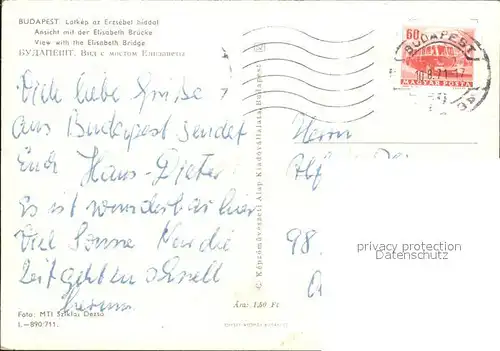 BUDAPEST Látkép az Erzsébet híddal
Ansicht mit der Elisabeth Brücke
View with the Elisabeth Bridge
БУДАПЕШТ. Вид с мостом Елизаветы
Viele liebe Grüße
aus Budapest sendet
Euch Hans-Dieter
Es ist wunderbar hier
Viel Sonne Nur die
Zeit geht so schnell
herum
Foto: MTI Sziklai Dezső
L-890/711.
© Képzőművészeti Alap Kiadóvállalata Budapest
Ára: 1,50 Ft
60
MAGYAR POSTA
BUDAPEST
Herrn
98
privacy protection
service